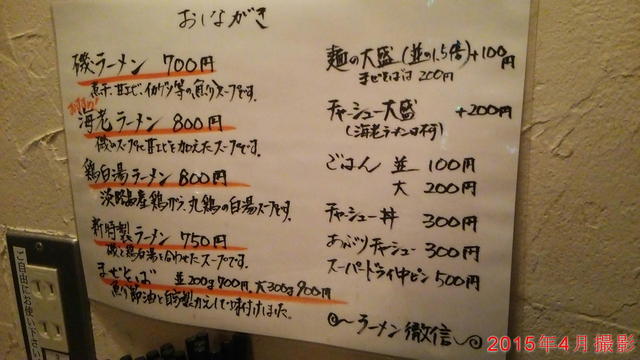 おしながき
磯ラーメン 700円
煮干、甘エビ、イカゲソ等の魚介スープです。
おすすめ!
海老ラーメン 800円
磯のスープに甘エビを加えたスープです。
鶏白湯ラーメン 800円
淡路島産鶏ガラ、丸鶏の白湯スープです。
新特製ラーメン 750円
磯と鶏白湯を合わせたスープです。
まぜそば 並200g 700円、大300g 900円
魚介節油と自家製カエシで味付けました。
麺の大盛(並の1.5倍)+100円
まぜそばは200円
チャーシュー大盛 +200円
(海老ラーメンは不可)
ごはん 並 100円
大 200円
チャーシュー丼 300円
あぶりチャーシュー 300円
スーパードライ中ビン 500円
ラーメン 徹信
ご自由にお使い下さい
2015年4月撮影